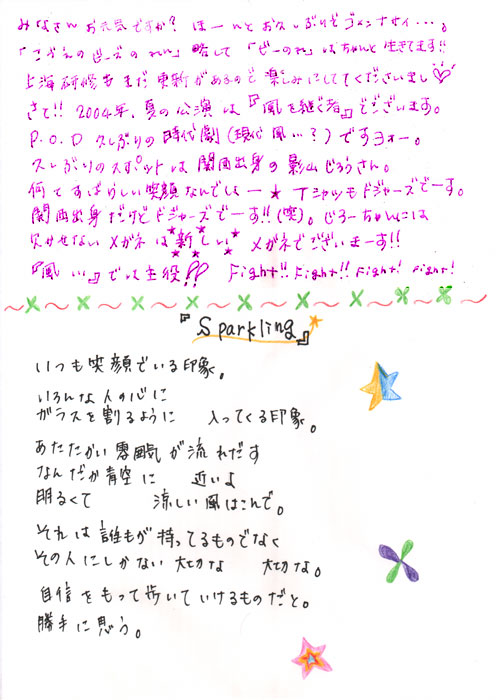 みなさんお元気ですか? ほーんとお久しぶりでゴメンナサイ…。
略して『ぜーのれ』はちゃんと生きてます!!
上海研修もまだ更新があるので楽しみにしててくださいまし♡
さて!! 2004年、夏の公演は『風を継ぐ者』でございます。
P.O.D 久しぶりの時代劇(現代風…?)ですヨォー。
久しぶりのスポットは関西出身の影山じろうさん。
何てすばらしい笑顔なんでしょー★ Tシャツもドジャースでーす。
関西出身だけどドジャースでーす!!(笑)。じろーちゃんには
欠かせないメガネは新しいメガネでございまーす!!
『風…』では主役!! Fight!! Fight!! Fight! Fight!
『Sparkling』
いつも笑顔でいる印象。
いろんな人の心に
ガラスを割るように 入ってくる印象。
あたたかい雰囲気が流れだす
なんだか青空に 近いよ
明るくて 涼しい風はこんで。
それは誰もが持ってるものでなく
その人にしかない大切な 大切な。
自信をもって歩いていけるものだと。
勝手に思う。